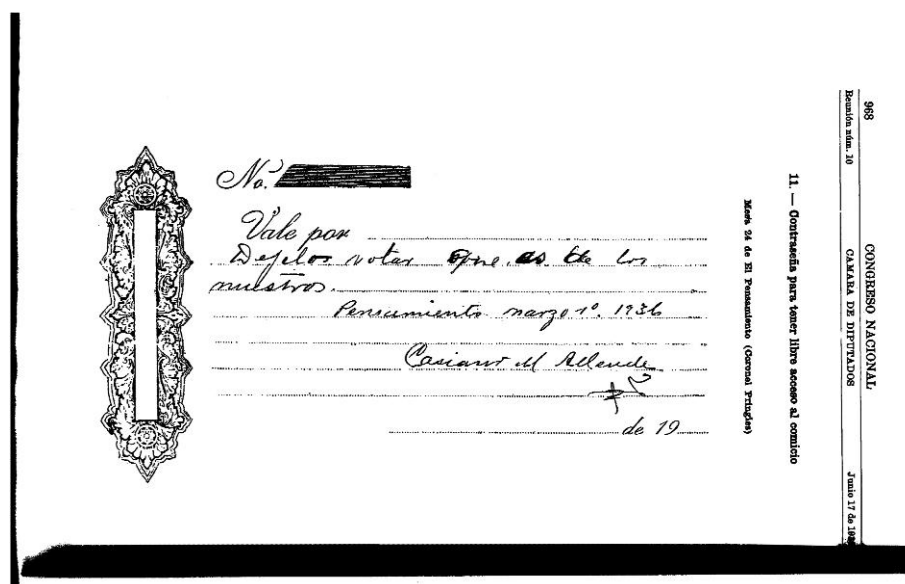 968
CONGRESO NACIONAL
Reunión núm. 10
CAMARA DE DIPUTADOS
Junio 17 de 1936
11. — Contraseña para tener libre acceso al comicio
Mesa 24 de El Pensamiento (Coronel Pringles)
No.
Vale por
Dejelos votar que es de los
nuestros.
Pensamiento marzo 1º. 1936
Casiano M Allende
de 19